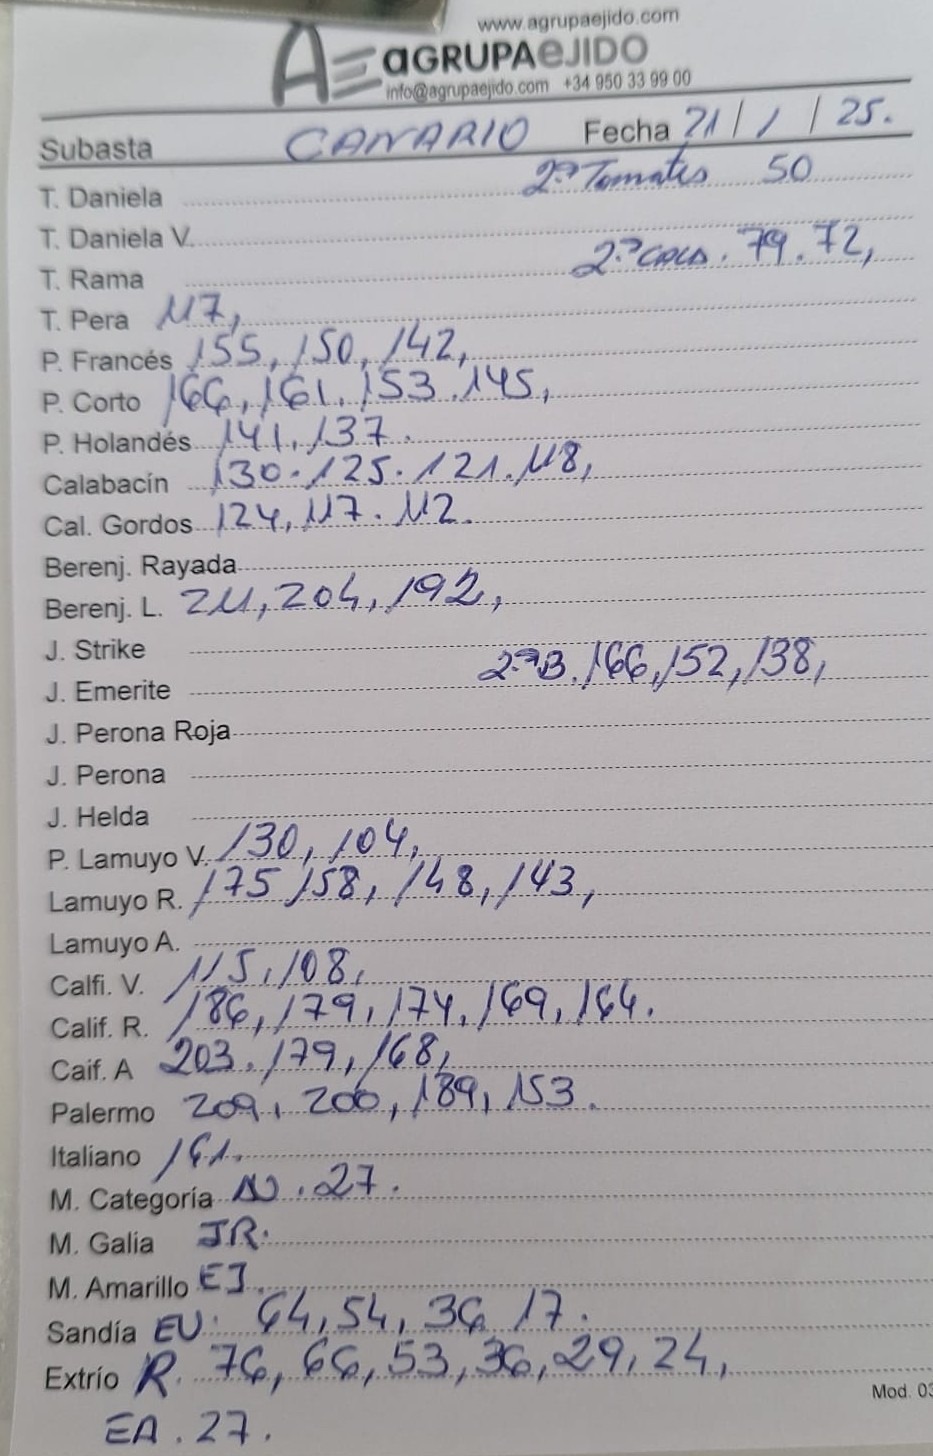 www.agrupaejido.com
AE aGRUPAeJIDO
info@agrupaejido.com +34 950 33 99 00
Subasta CANARIO Fecha 21/1/25.
T. Daniela 2ª Tomates 50
T. Daniela V.
T. Rama 2ª CALA. 79. 72,
T. Pera 117,
P. Francés 155, 150, 142,
P. Corto 166, 161, 153. 145,
P. Holandés 141. 137.
Calabacín 130. 125. 121. 118,
Cal. Gordos 124, 117. 112.
Berenj. Rayada
Berenj. L. 211, 204, 192,
J. Strike
J. Emerite 2ªB. 166, 152, 138,
J. Perona Roja
J. Perona
J. Helda
P. Lamuyo V. 130, 104,
Lamuyo R. 175 158, 148, 143,
Lamuyo A.
Calfi. V. 115, 108,
Calif. R. 186, 179, 174, 169, 164.
Caif. A 203. 179, 168,
Palermo 209, 200, 189, 153.
Italiano 161.
M. Categoría . 27.
M. Galia JR.
M. Amarillo EJ.
Sandía EU. 64, 54, 36 17.
Extrío R. 76, 66, 53, 36, 29, 24,
EA. 27.
Mod. 03